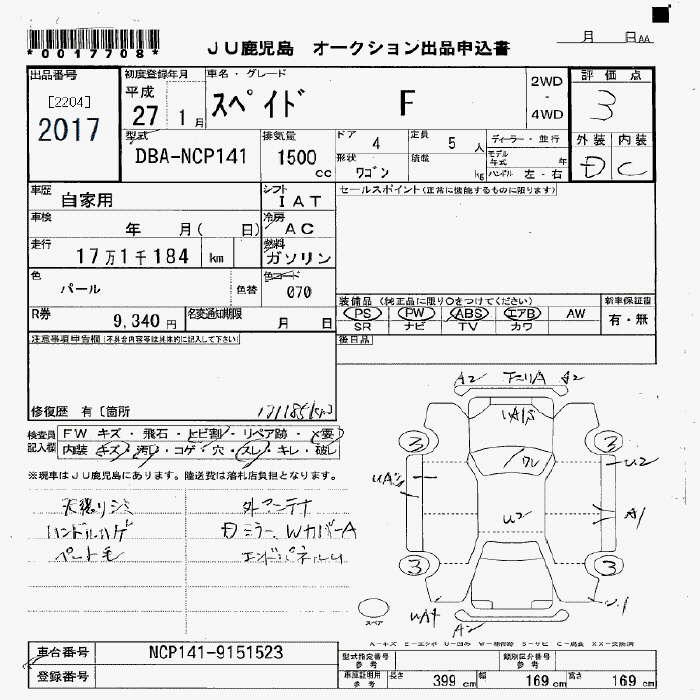 *0017708*
JU鹿児島 オークション出品申込書
月 日 AA
出品番号 [2204] 2017
初度登録年月 平成 27 1月
車名・グレード スペイド F
2WD - 4WD
評価点 3
型式 DBA-NCP141
排気量 1500 cc
ドア 4 定員 5 人
ディーラー・並行
外装 内装
形状 ワゴン 積載 kg
モデル年式 年
ハンドル 左・右
D C
車歴 自家用
シフト IAT
セールスポイント(正常に機能するものに限ります)
車検 年 月( 日)
冷房 AC
走行 17万1千184 km
燃料 ガソリン
色 パール 色替
色コード 070
装備品(純正品に限り○をつけてください)
新車保証書
R券 9,340円
名変通知期限 月 日
PS PW ABS エアB AW
有・無
SR ナビ TV カワ
注意事項申告欄(不具合内容等は具体的に記入して下さい)
後日品
修復歴 有〔箇所
171185km
検査員記入欄
FW キズ・飛石・ヒビ割・リペア跡・X要
内装 キズ・汚れ・コゲ・穴・スレ・キレ・破レ
※現車はJU鹿児島にあります。陸送費は落札店負担となります。
外アンテナ
ハンドルハゲ
Dミラー、WカバーA
ペット毛
エンドパネルU
A2 A2
3 3
U2
A1
U2
3 3
A2
スペア
A-キズ E-エクボ U-凹み
車台番号 NCP141-9151523
登録番号
型式指定番号 参考
類別区分番号 参考
車庫証明用 参考 長さ 399 cm 幅 169 cm 高さ 169 cm